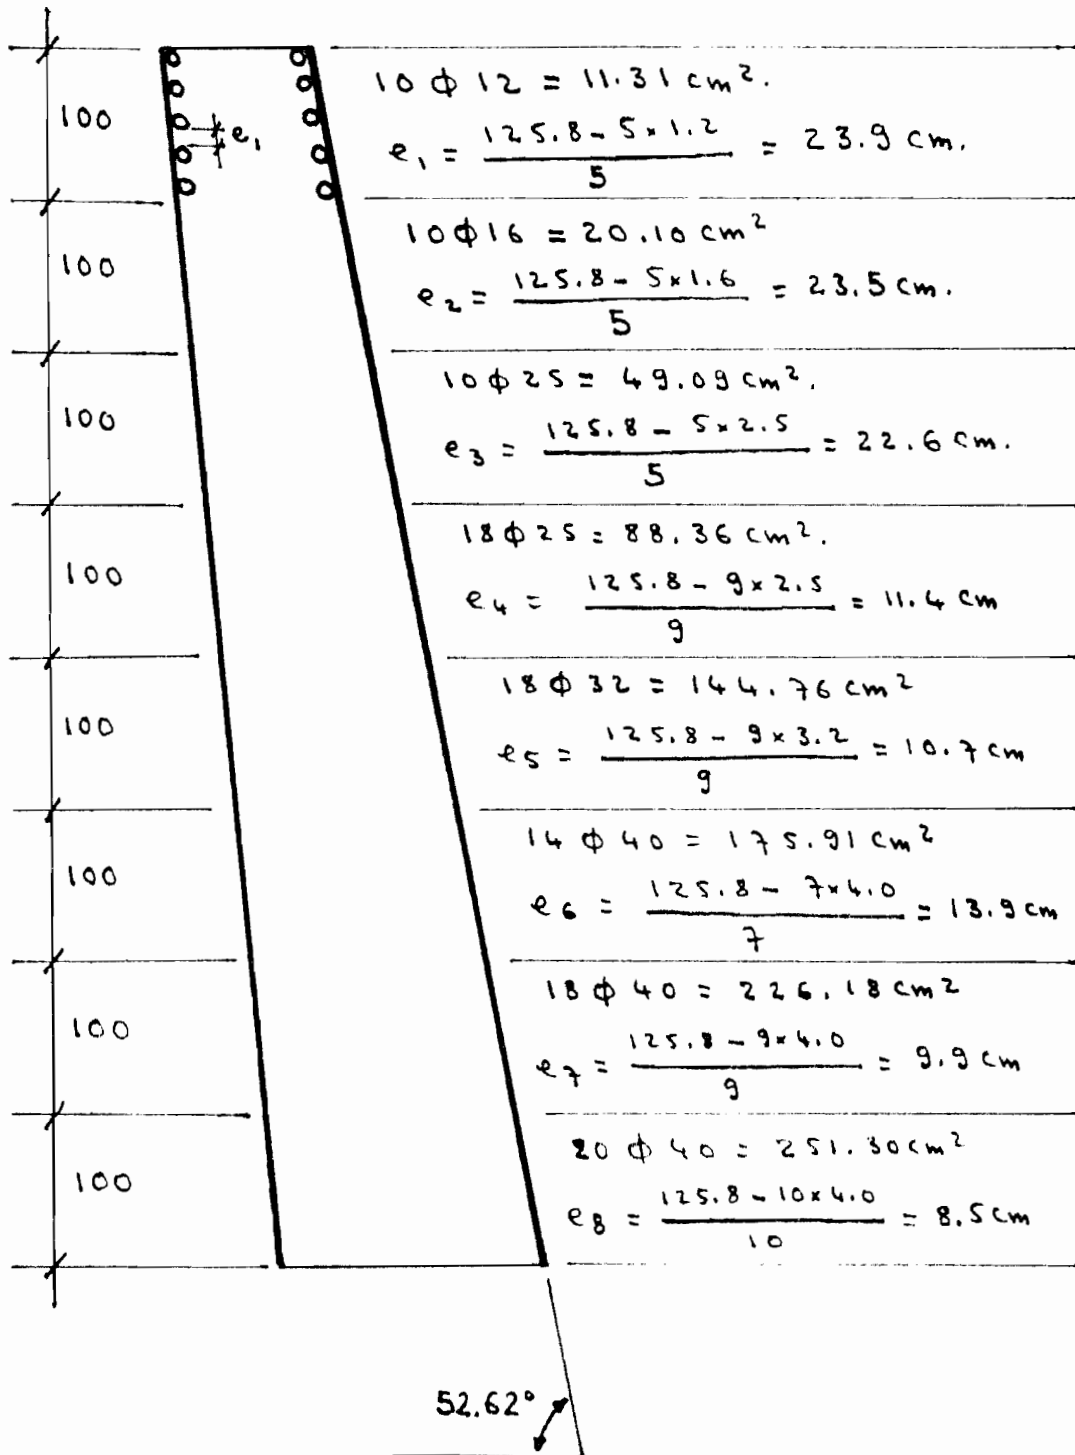 100
10 ϕ 12 = 11.31 cm².
e₁
e₁ = (125.8 - 5 × 1.2) / 5 = 23.9 cm.
100
10 ϕ 16 = 20.10 cm²
e₂ = (125.8 - 5 × 1.6) / 5 = 23.5 cm.
100
10 ϕ 25 = 49.09 cm².
e₃ = (125.8 - 5 × 2.5) / 5 = 22.6 cm.
100
18 ϕ 25 = 88.36 cm².
e₄ = (125.8 - 9 × 2.5) / 9 = 11.4 cm
100
18 ϕ 32 = 144.76 cm²
e₅ = (125.8 - 9 × 3.2) / 9 = 10.7 cm
100
14 ϕ 40 = 175.91 cm²
e₆ = (125.8 - 7 × 4.0) / 7 = 13.9 cm
100
18 ϕ 40 = 226.18 cm²
e₇ = (125.8 - 9 × 4.0) / 9 = 9.9 cm
100
20 ϕ 40 = 251.30 cm²
e₈ = (125.8 - 10 × 4.0) / 10 = 8.5 cm
52.62°